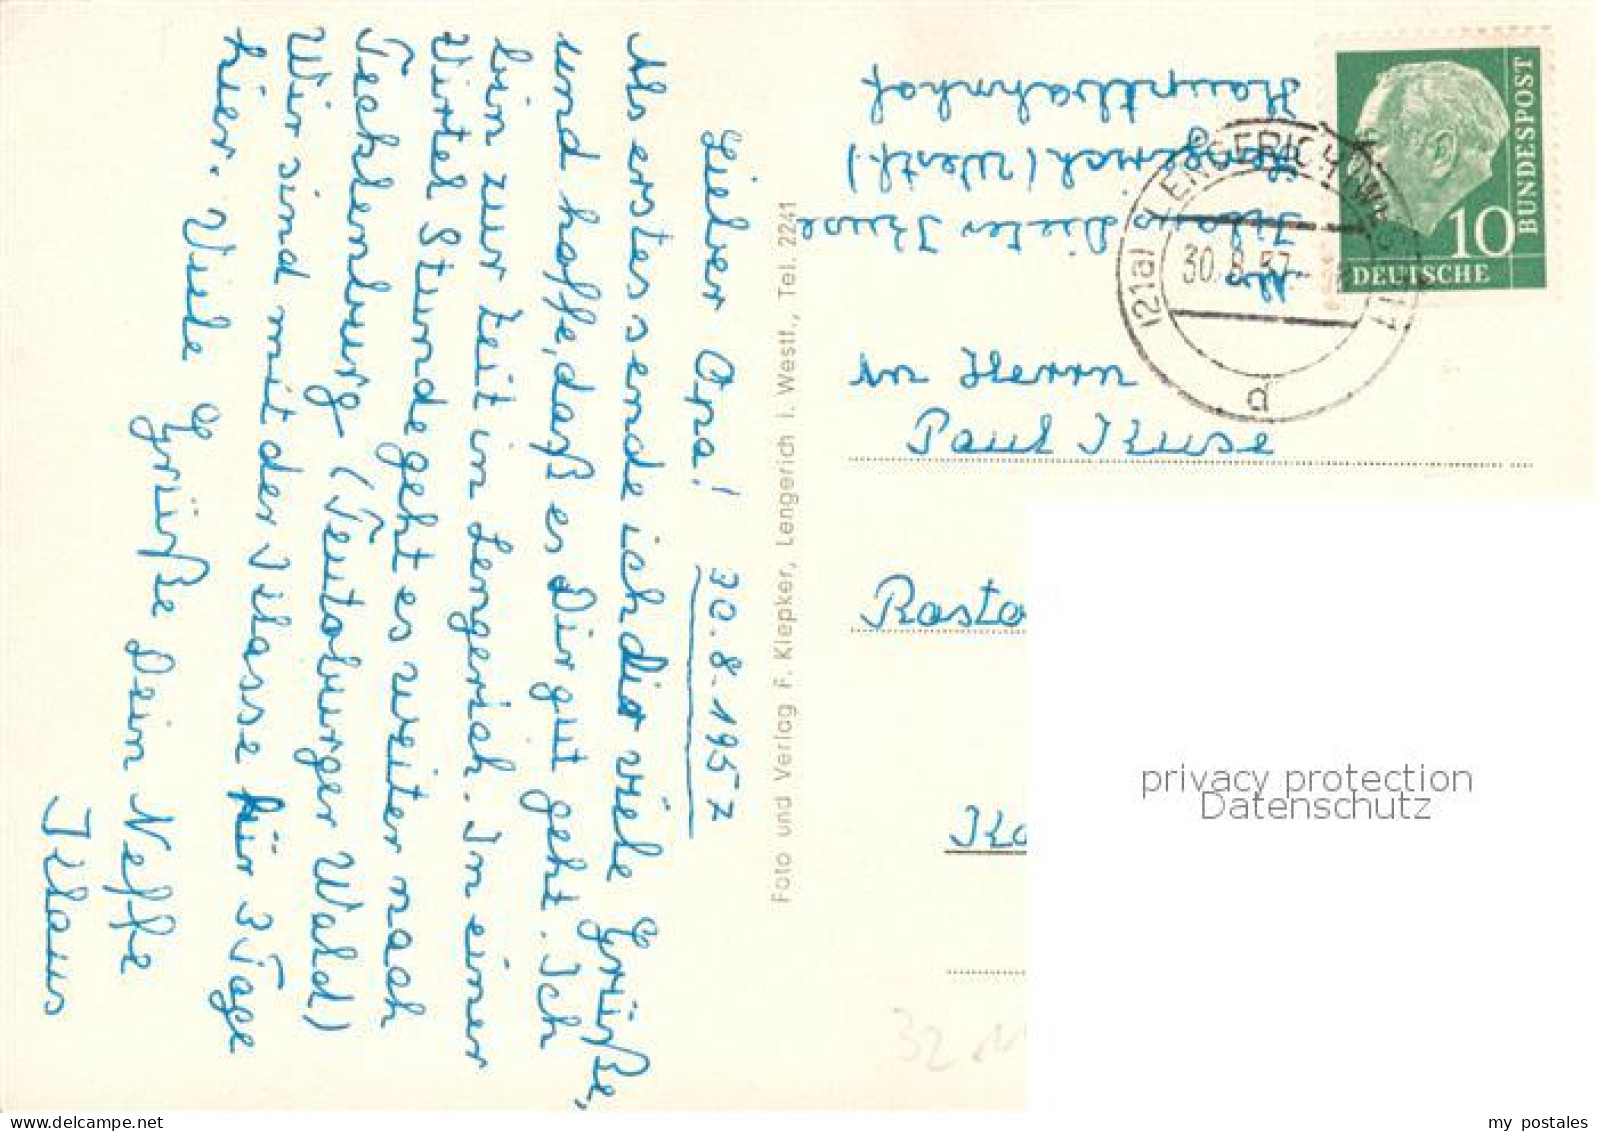 Lieber Opa! 30.8.1957
Als erstes sende ich dir viele Grüße,
und hoffe, daß es Dir gut geht. Ich
bin zur Zeit in Lengerich. In einer
Virtel Stunde geht es weiter nach
Tecklenburg (Teutoburger Wald)
Wir sind mit der Klasse für 3 Tage
hier. Viele
Grüße Dein Neffe
Klaus
Foto und Verlag F. Kiepker, Lengerich i. Westf., Tel. 2241
Klaus Dieter Kruse
Lengerich (Westf.)
Hauptbahnhof
An Herrn
Paul Kruse
(21a) LENGERICH (WESTF)
30.8.57
a
DEUTSCHE
BUNDESPOST
10
privacy protection
Datenschutz
my postales